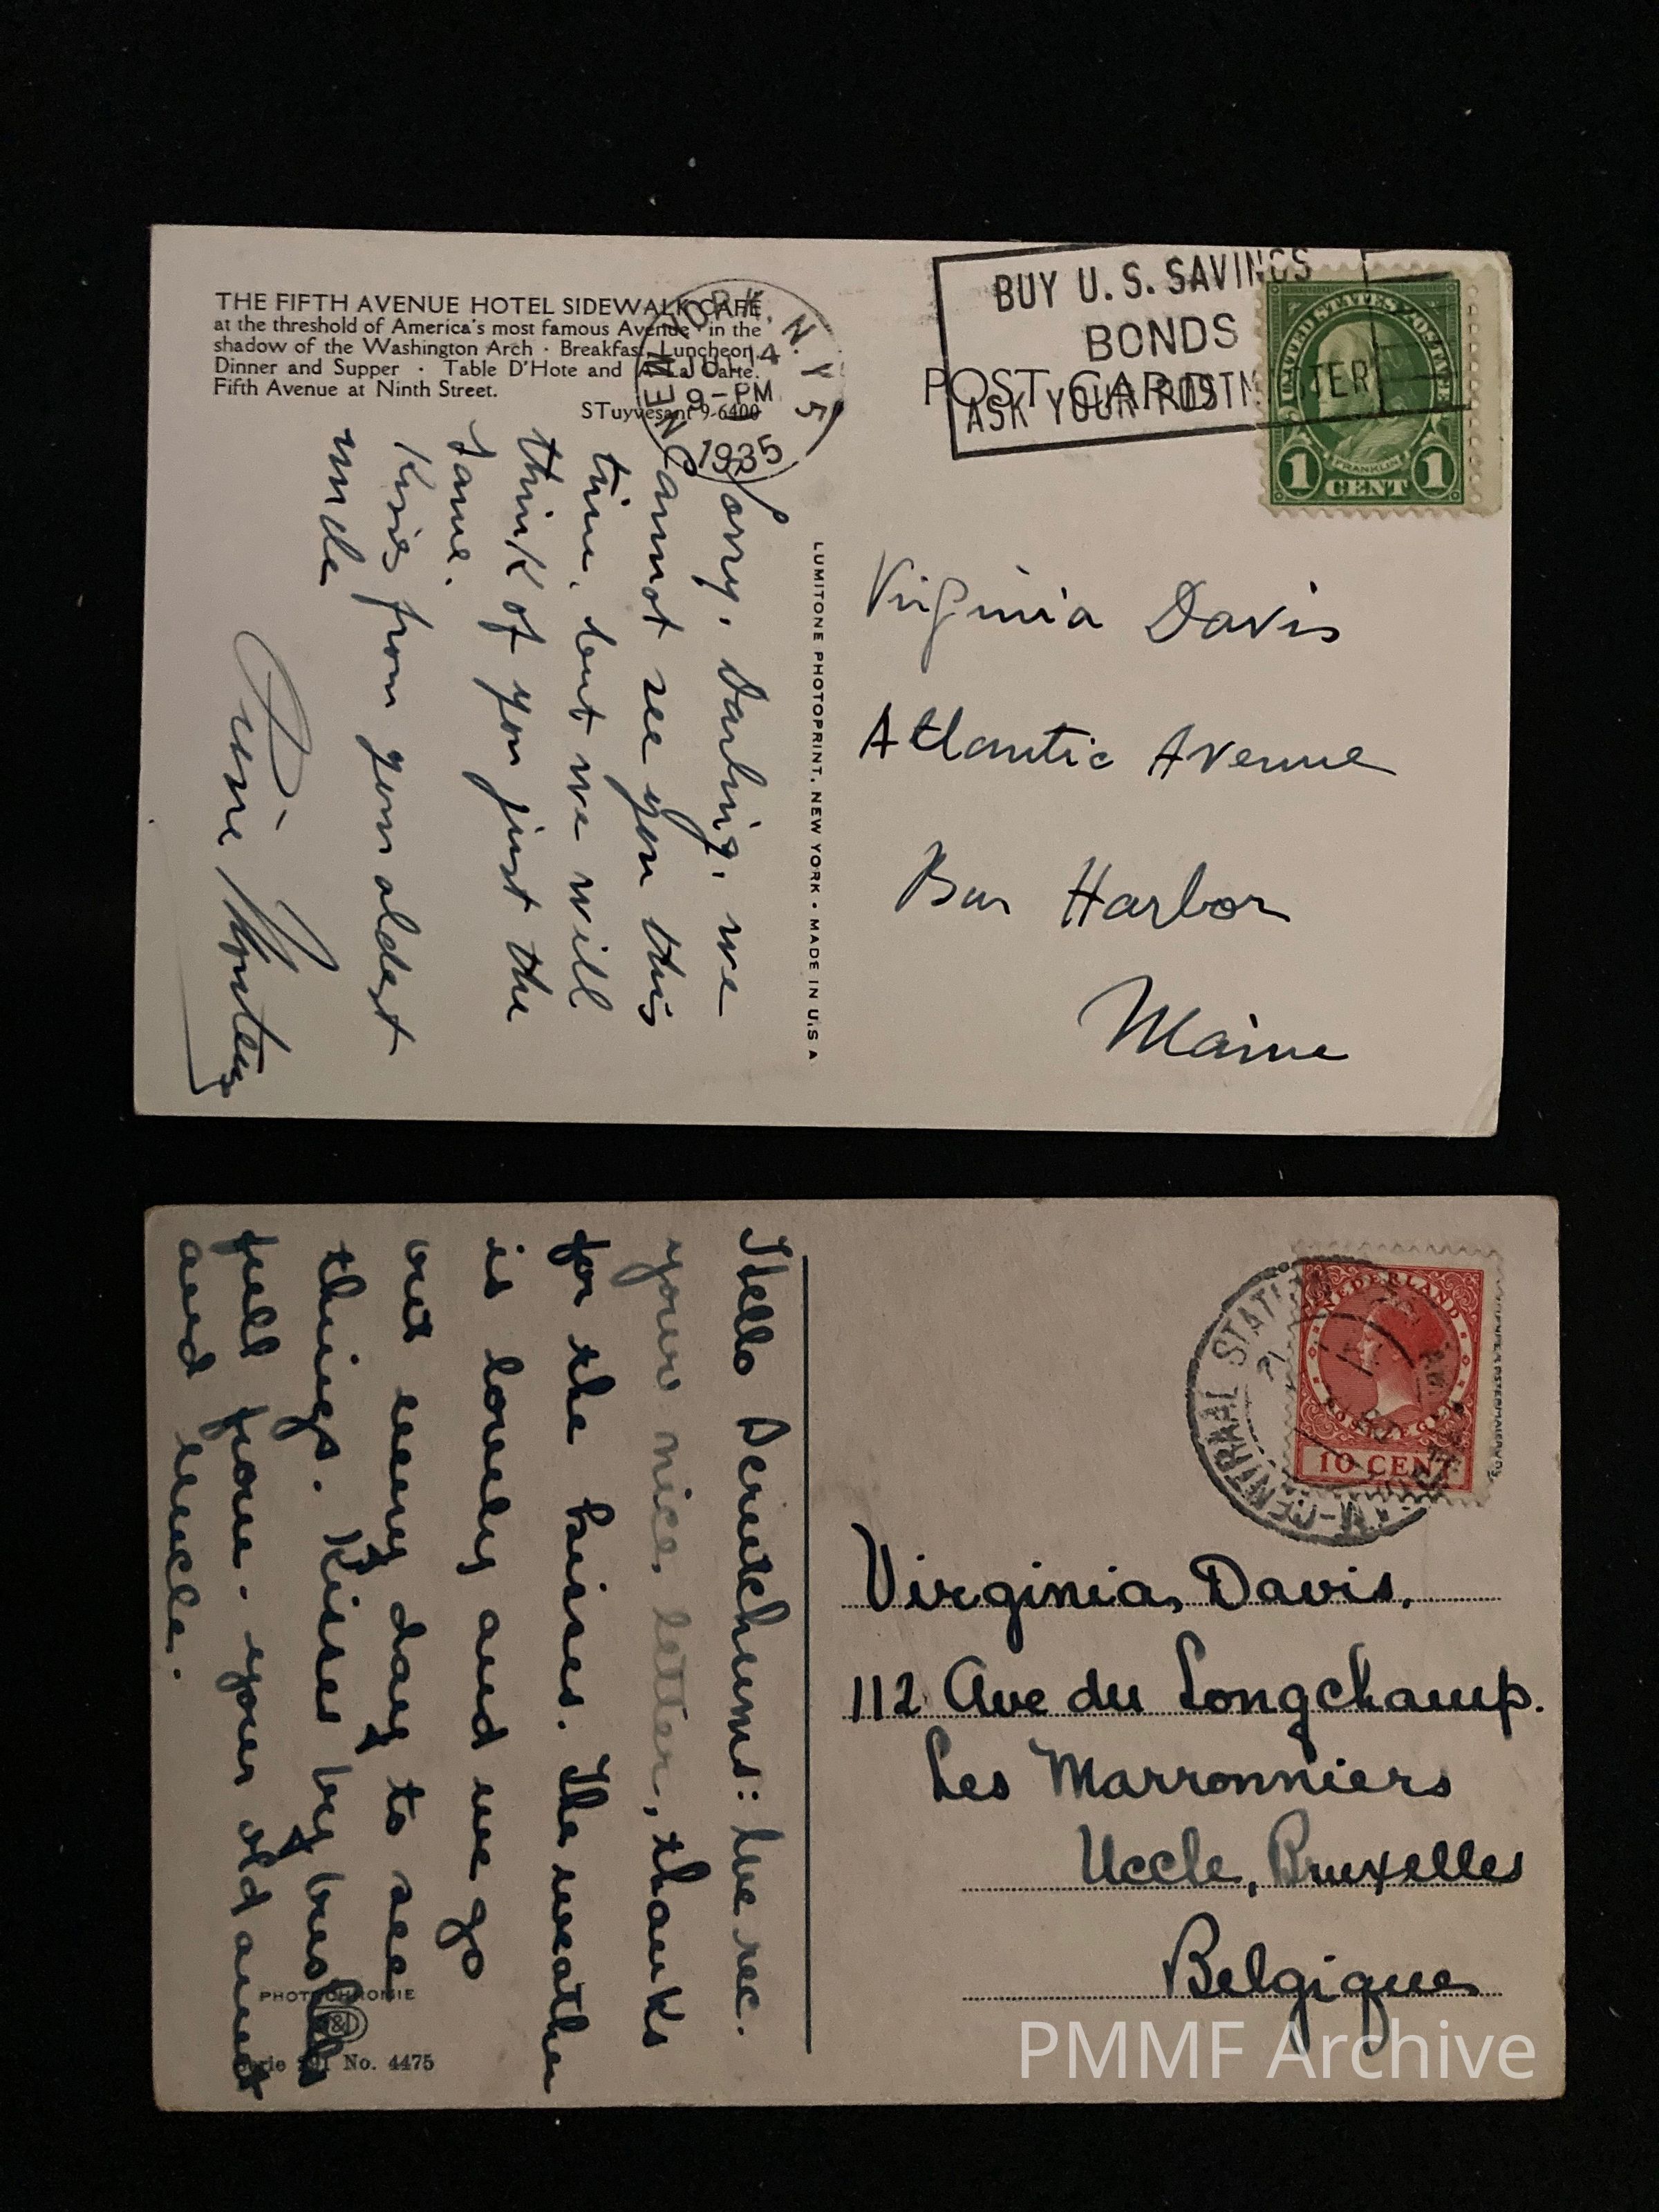 THE FIFTH AVENUE HOTEL SIDEWALK CAFE,
at the threshold of America's most famous Avenue · in the
shadow of the Washington Arch · Breakfast, Luncheon,
Dinner and Supper · Table D'Hote and A La Carte.
Fifth Avenue at Ninth Street.
STuyvesant 9-6400
NEW YORK, N.Y. 5
JUL 14
9-PM
1935
BUY U.S. SAVINGS
BONDS
ASK YOUR POSTMASTER
POST CARD
UNITED STATES POSTAGE
FRANKLIN
1 CENT 1
Sorry, Darling, we
cannot see you this
time, but we will
think of you just the
same.
Kisses from your oldest
uncle
Pierre Monteux
LUMITONE PHOTOPRINT, NEW YORK · MADE IN U.S.A.
Virginia Davis
Atlantic Avenue
Bar Harbor
Maine
Hello Scrutchums: We rec.
your nice letter, thanks
for the kisses. The weather
is lovely and we go
out every day to see
things. Kisses by bushels
full from - your old aunt
and uncle.
PHOTOCHROMIE
Serie No. 4475
NEDERLAND
10 CENT
CENTRAAL STATION
Virginia Davis.
112 Ave du Longchamp.
Les Marronniers
Uccle, Bruxelles
Belgique
PMMF Archive